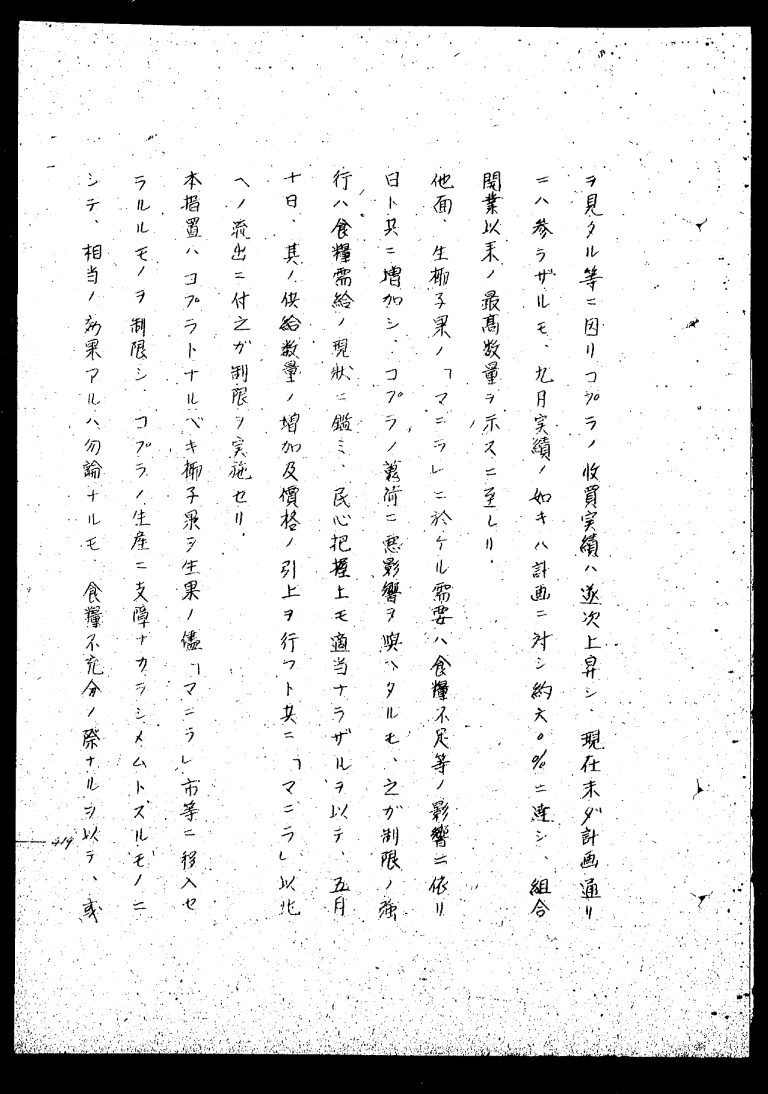 ヲ見タル等ニ因リコプラノ收買実績ハ逐次上昇シ、現在未ダ計画通リ
ニハ参ラザルモ、九月実績ノ如キハ計画ニ対シ約六〇%ニ達シ、組合
開業以来ノ最高数量ヲ示スニ至レリ.
他面、生椰子果ノ「マニラ」ニ於ケル需要ハ食糧不足等ノ影響ニ依リ
日ト共ニ増加シ、コプラノ蒐荷ニ悪影響ヲ與ヘタルモ、之ガ制限ノ強
行ハ食糧需給ノ現状ニ鑑ミ、民心把握上モ適当ナラザルヲ以テ、五月
十日、其ノ供給数量ノ増加及價格ノ引上ヲ行フト共ニ「マニラ」以北
ヘノ流出ニ付之ガ制限ヲ実施セリ.
本措置ハコプラトナルベキ椰子果ヲ生果ノ儘「マニラ」市等ニ移入セ
ラルルモノヲ制限シ、コプラノ生産ニ支障ナカラシメムトスルモノニ
シテ、相当ノ効果アルハ勿論ナルモ、食糧不充分ノ際ナルヲ以テ、或
419